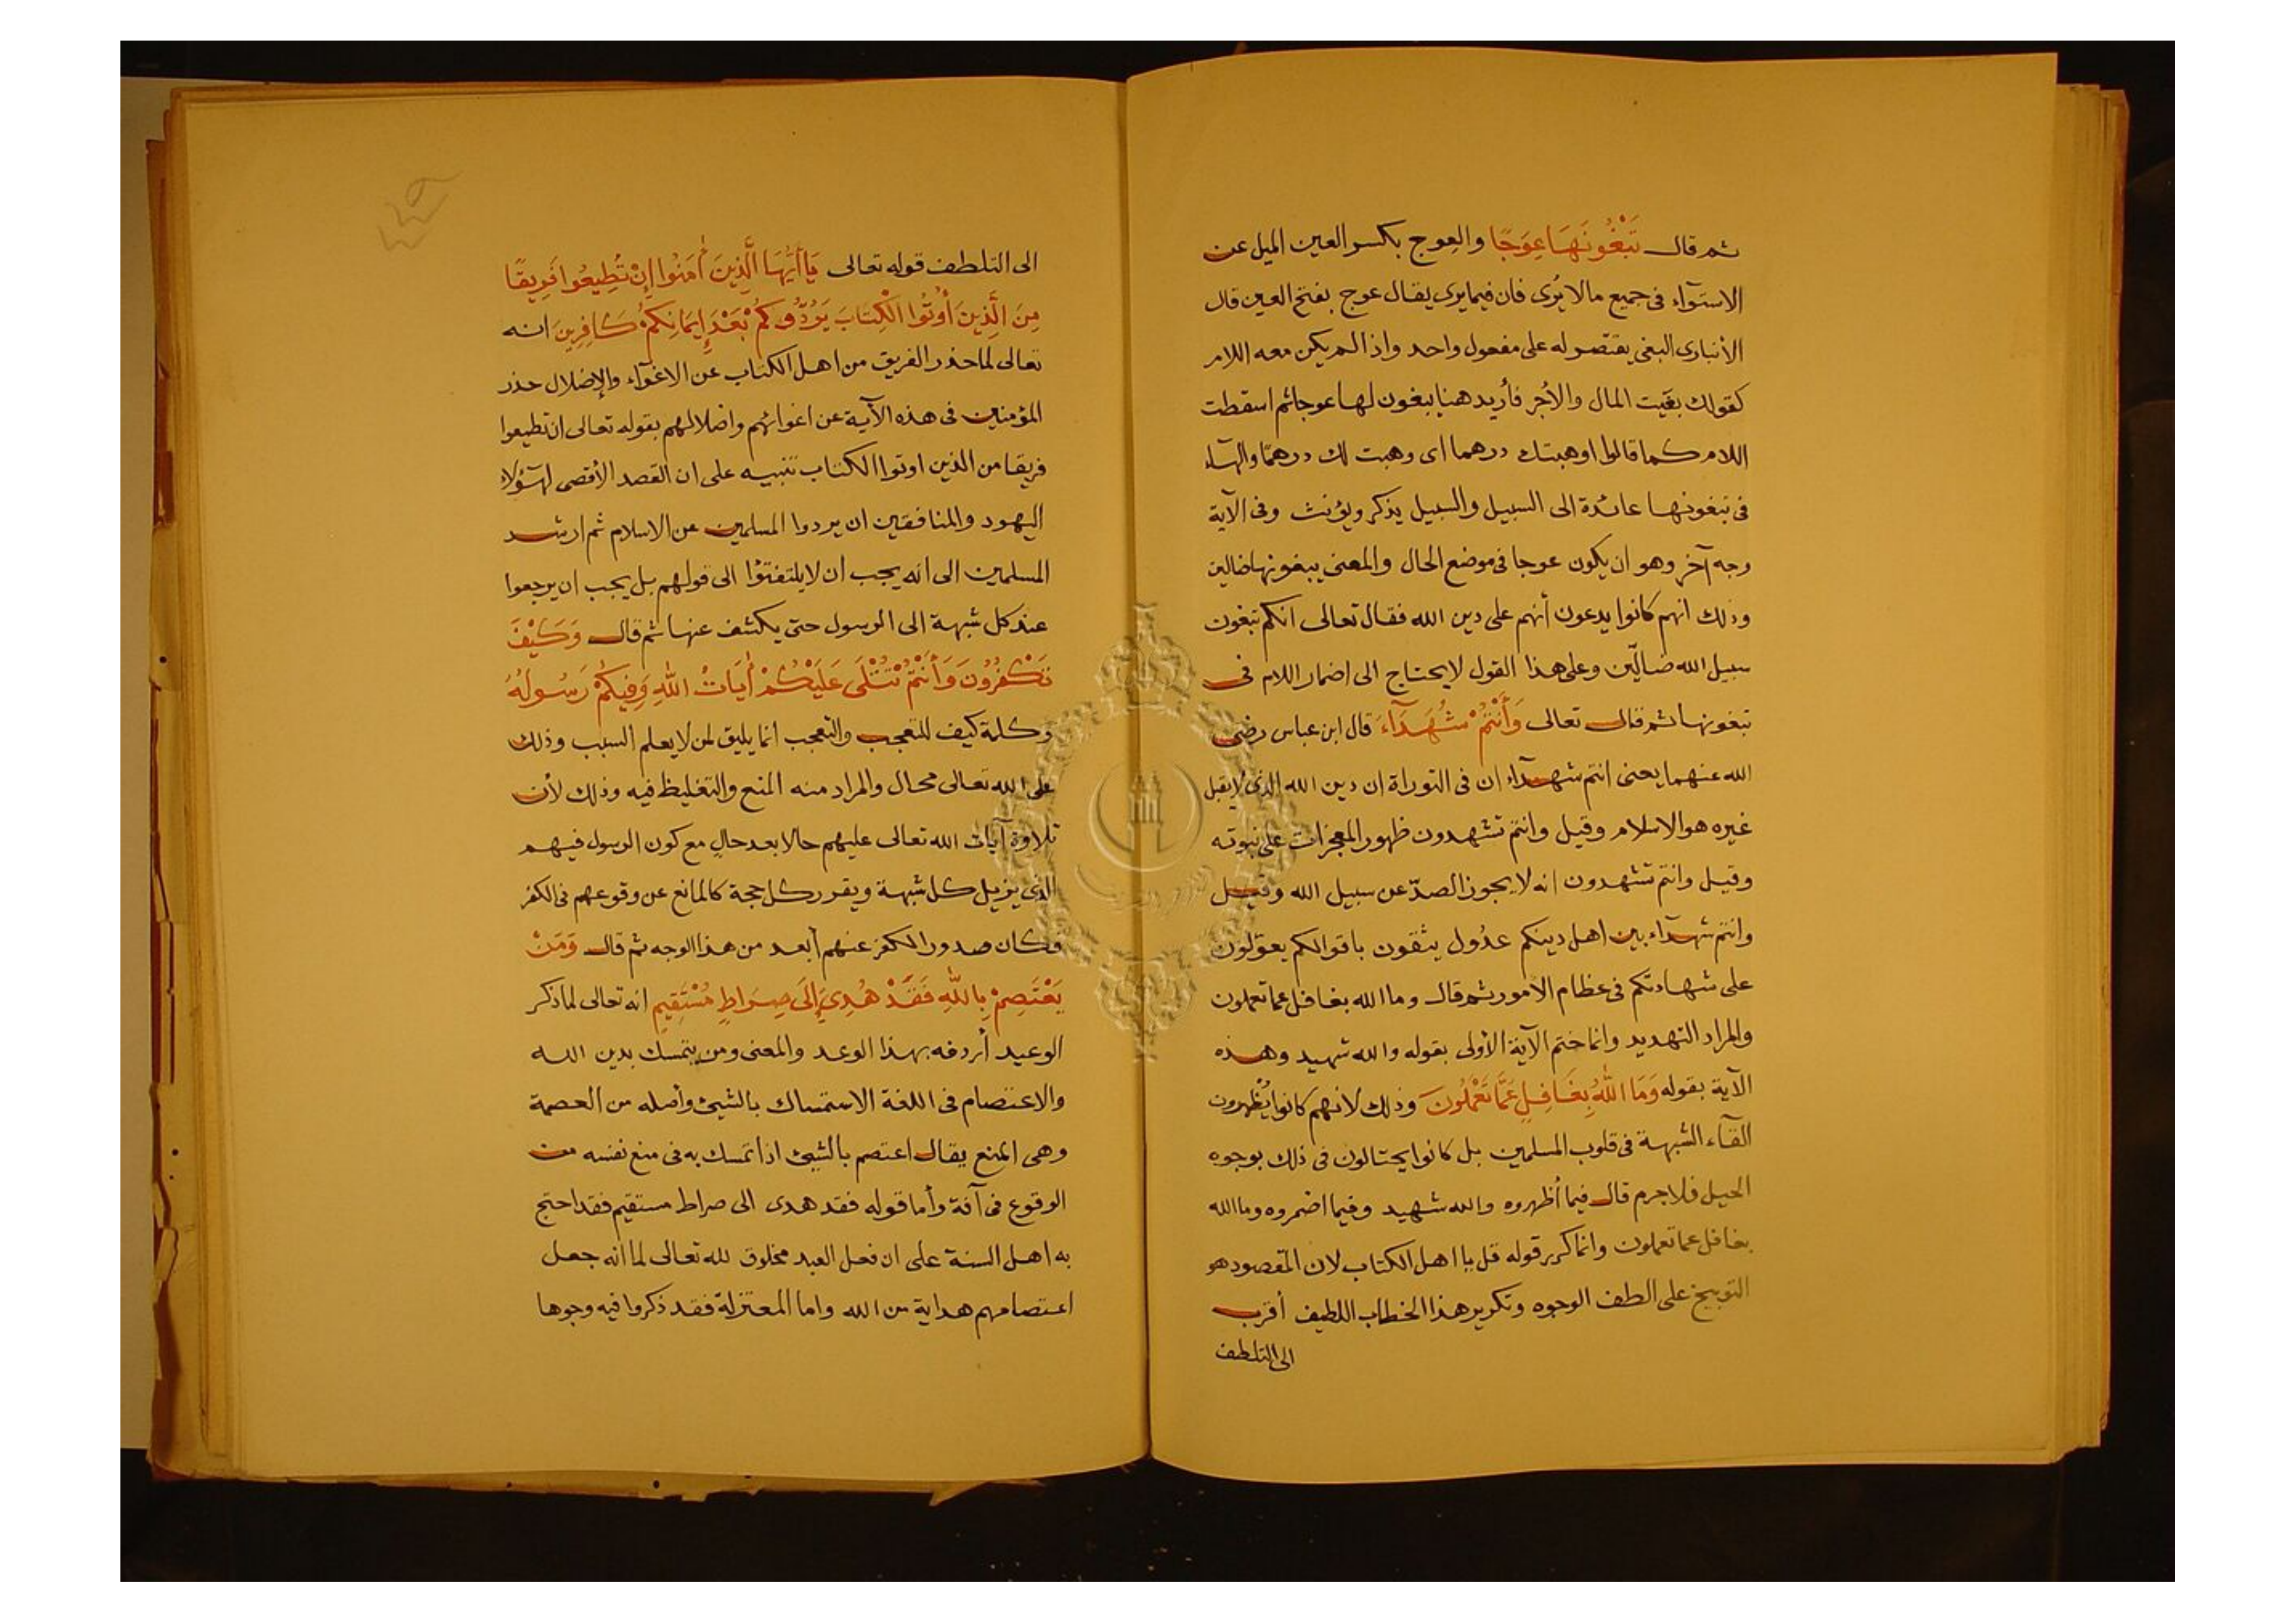 ثم قال تَبْغُونَهَا عِوَجًا والعِوج بكسر العين الميل عن
الاستوآء فى جميع مالا يُرى فان فيما يرى يقال عوج بفتح العين قال
الأنبارى البغى يقتصر له على مفعول واحد واذا لم يكن معه اللام
كقولك بغيت المال والأجر فأريد هنا يبغون لها عوجا ثم اسقطت
اللام كما قالوا وهبتك درهما اى وهبت لك درهمًا والهآء
فى تبغونها عائدة الى السبيل والسبيل يذكر ويؤنث وفى الآية
وجه آخر وهو ان يكون عوجا فى موضع الحال والمعنى يبغونها ضالين
وذلك انهم كانوا يدعون أنهم على دين الله فقال تعالى انكم تبغون
سبيل الله ضالّين وعلى هذا القول لا يحتاج الى اضمار اللام فى
تبغونها ثم قال تعالى وَأَنْتُمْ شُهَدَآءَ قال ابن عباس رضى
الله عنهما يعنى انتم شهدآء ان فى التوراة ان دين الله الذى لا يقبل
غيره هو الاسلام وقيل وانتم تشهدون ظهور المعجزات على نبوته
وقيل وانتم تشهدون انه لا يجوز الصدّ عن سبيل الله وقيل
وانتم شهدآء بين اهل دينكم عدُول يثقون باقوالكم يعوّلون
على شهادتكم فى عظام الأمور ثم قال وما الله بغافل عما تعملون
والمراد التهديد وانما ختم الآية الأولى بقوله والله شهيد وهذه
الآية بقوله وَمَا اللهُ بِغَافِلٍ عَمَّا تَعْمَلُونَ وذلك لأنهم كانوا يُظهرون
القآء الشبهة فى قلوب المسلمين بل كانوا يحتالون فى ذلك بوجوه
الحيل فلا جرم قال فيما أظهروه والله شهيد وفيما اضمروه وما الله
بغافل عما تعملون وانما كرر قوله قل يا اهل الكتاب لان المقصود هو
التوبيخ على الطف الوجوه وتكرير هذا الخطاب اللطيف أقرب
الى التلطف
الى التلطف قوله تعالى يَا أَيُّهَا الَّذِينَ أٰمَنُوا إِنْ تُطِيعُوا فَرِيقًا
مِنَ الَّذِينَ أُوتُوا الْكِتَابَ يَرُدُّوكُمْ بَعْدَ إِيمَانِكُمْ كَافِرِينَ انه
تعالى لما حذر الفريق من اهل الكتاب عن الاغوآء والإضلال حذر
المؤمنين فى هذه الآية عن اغوائهم واضلالهم بقوله تعالى ان تطيعوا
فريقا من الذين اوتوا الكتاب تنبيه على ان القصد الأقصى لهؤلآء
اليهود والمنافقين ان يردوا المسلمين عن الاسلام ثم ارشد
المسلمين الى انه يجب ان لا يلتفتوا الى قولهم بل يجب ان يرجعوا
عند كل شبهة الى الرسول حتى يكشف عنها ثم قال وَكَيْفَ
تَكْفُرُونَ وَأَنْتُمْ تُتْلَى عَلَيْكُمْ أٰيَاتُ اللهِ وَفِيكُمْ رَسُولُهُ
وكلمة كيف للتعجب والتعجب انما يليق لمن لا يعلم السبب وذلك
على الله تعالى محال والمراد منه المنع والتغليظ فيه وذلك لأن
تلاوة آيات الله تعالى عليهم حالا بعد حالٍ مع كون الرسول فيهم
الذى يزيل كل شبهة ويقرر كل حجة كالمانع عن وقوعهم فى الكفر
فكان صدور الكفر عنهم أبعد من هذا الوجه ثم قال وَمَنْ
يَعْتَصِمْ بِاللهِ فَقَدْ هُدِيَ إِلَى صِرَاطٍ مُسْتَقِيمٍ انه تعالى لما ذكر
الوعيد أردفه بهذا الوعد والمعنى ومن يتمسك بدين الله
والاعتصام فى اللغة الاستمساك بالشيئ وأصله من العصمة
وهى المنع يقال اعتصم بالشيئ اذا تمسك به فى منع نفسه من
الوقوع فى آفة وأما قوله فقد هدى الى صراط مستقيم فقد احتج
به اهل السنة على ان فعل العبد مخلوق لله تعالى لما انه جعل
اعتصامهم هداية من الله واما المعتزلة فقد ذكروا فيه وجوها